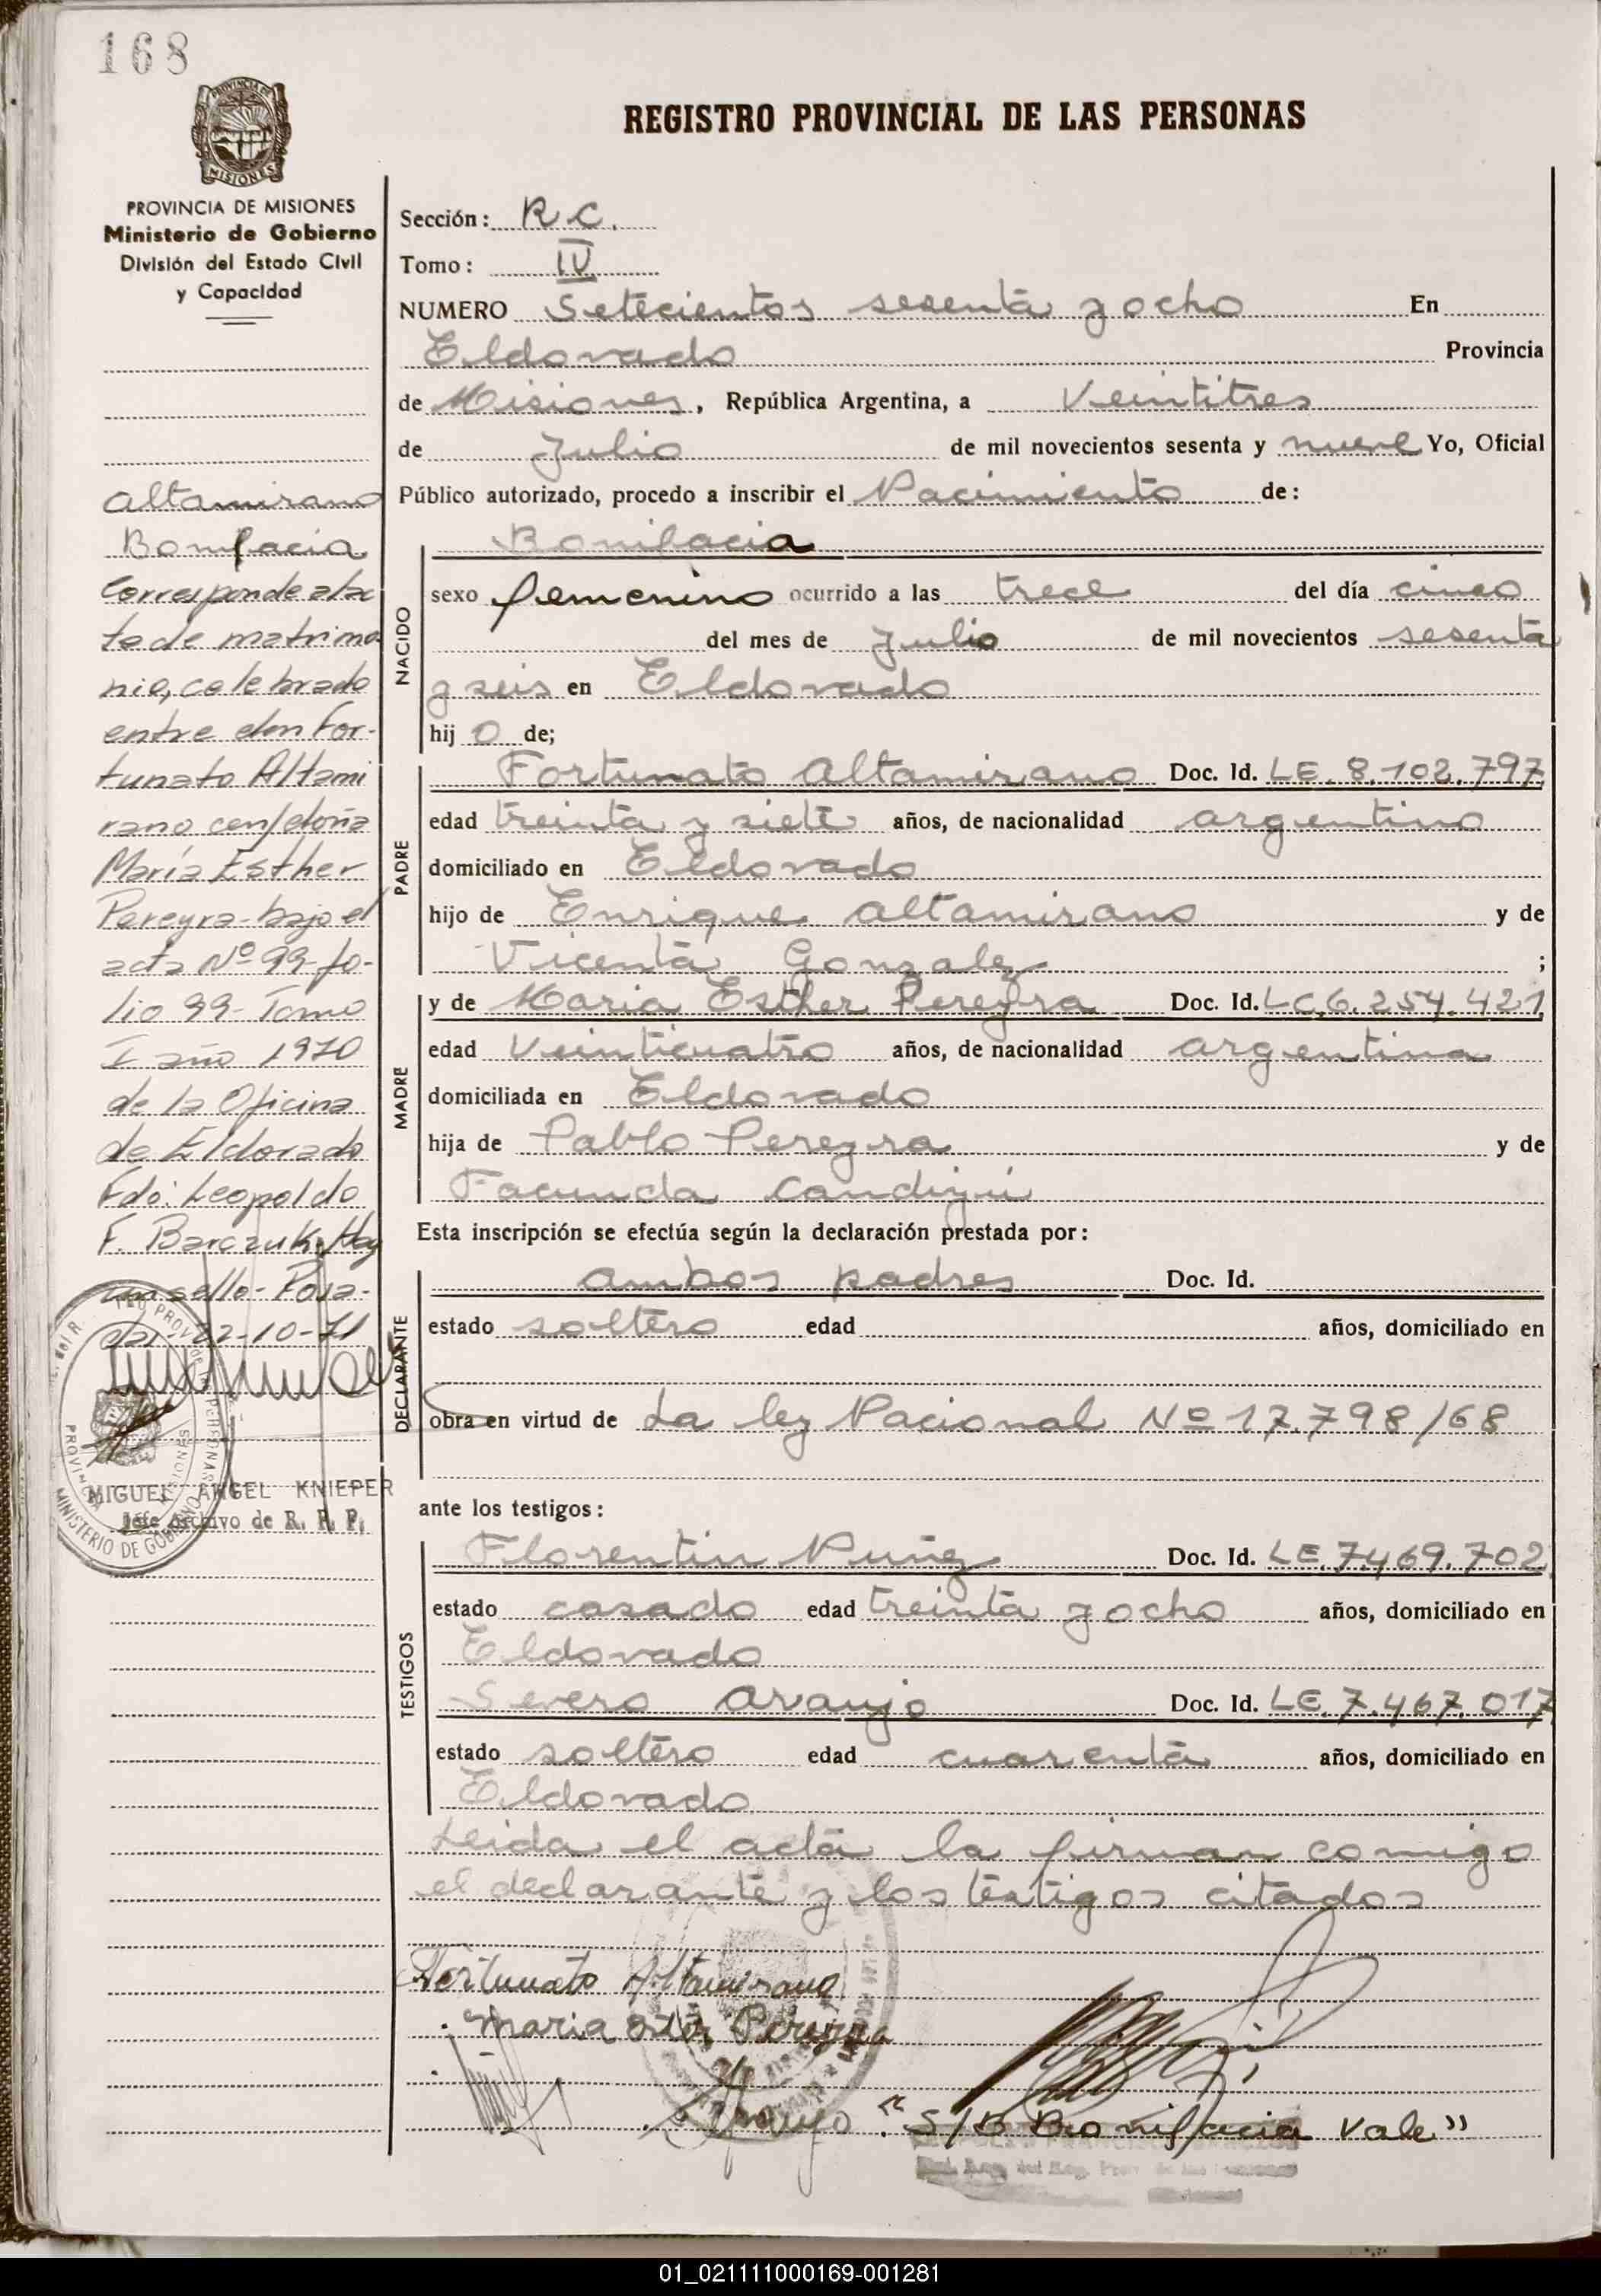 168
REGISTRO PROVINCIAL DE LAS PERSONAS
PROVINCIA DE MISIONES
Ministerio de Gobierno
División del Estado Civil
y Capacidad
Altamirano
Bonifacia
Corresponde al ac
ta de matrimo
nio, celebrado
entre don For-
tunato Altami
rano con/doña
María Esther
Pereyra-bajo el
acta Nº 99-fo-
lio 99-Tomo
I año 1970
de la Oficina
de Eldorado
Fdo: Leopoldo
F. Barczuk. Hay
un sello-Posa-
das. 22-10-71
MIGUEL ANGEL KNIEPER
Jefe Archivo de R. P. P.
Sección: R.C.
Tomo: IV
NUMERO Setecientos sesenta y ocho En
Eldorado Provincia
de Misiones, República Argentina, a Veintitres
de Julio de mil novecientos sesenta y nueve Yo, Oficial
Público autorizado, procedo a inscribir el Nacimiento de:
NACIDO
Bonifacia
sexo femenino ocurrido a las trece del día cinco
del mes de Julio de mil novecientos sesenta
y seis en Eldorado
hijo de;
PADRE
Fortunato Altamirano Doc. Id. LE. 8.102.797
edad treinta y siete años, de nacionalidad argentino
domiciliado en Eldorado
hijo de Enrique Altamirano y de
Vicenta Gonzalez ;
MADRE
y de Maria Esther Pereyra Doc. Id. LC.6.254.421
edad Veinticuatro años, de nacionalidad argentina
domiciliada en Eldorado
hija de Pablo Pereyra y de
Facunda
Esta inscripción se efectúa según la declaración prestada por:
DECLARANTE
ambos padres Doc. Id.
estado soltero edad años, domiciliado en
obra en virtud de La ley Nacional Nº 17.798/68
ante los testigos:
TESTIGOS
Florentin Nuñez Doc. Id. LE.7.469.702
estado casado edad treinta y ocho años, domiciliado en
Eldorado
Severo Araujo Doc. Id. LE.7.467.017
estado soltero edad cuarenta años, domiciliado en
Eldorado
Leida el acta la firman comigo
el declarante y los testigos citados
Fortunato Altamirano
Maria Ester Pereyra
Araujo "S/B Bonifacia Vale"
01_021111000169-001281